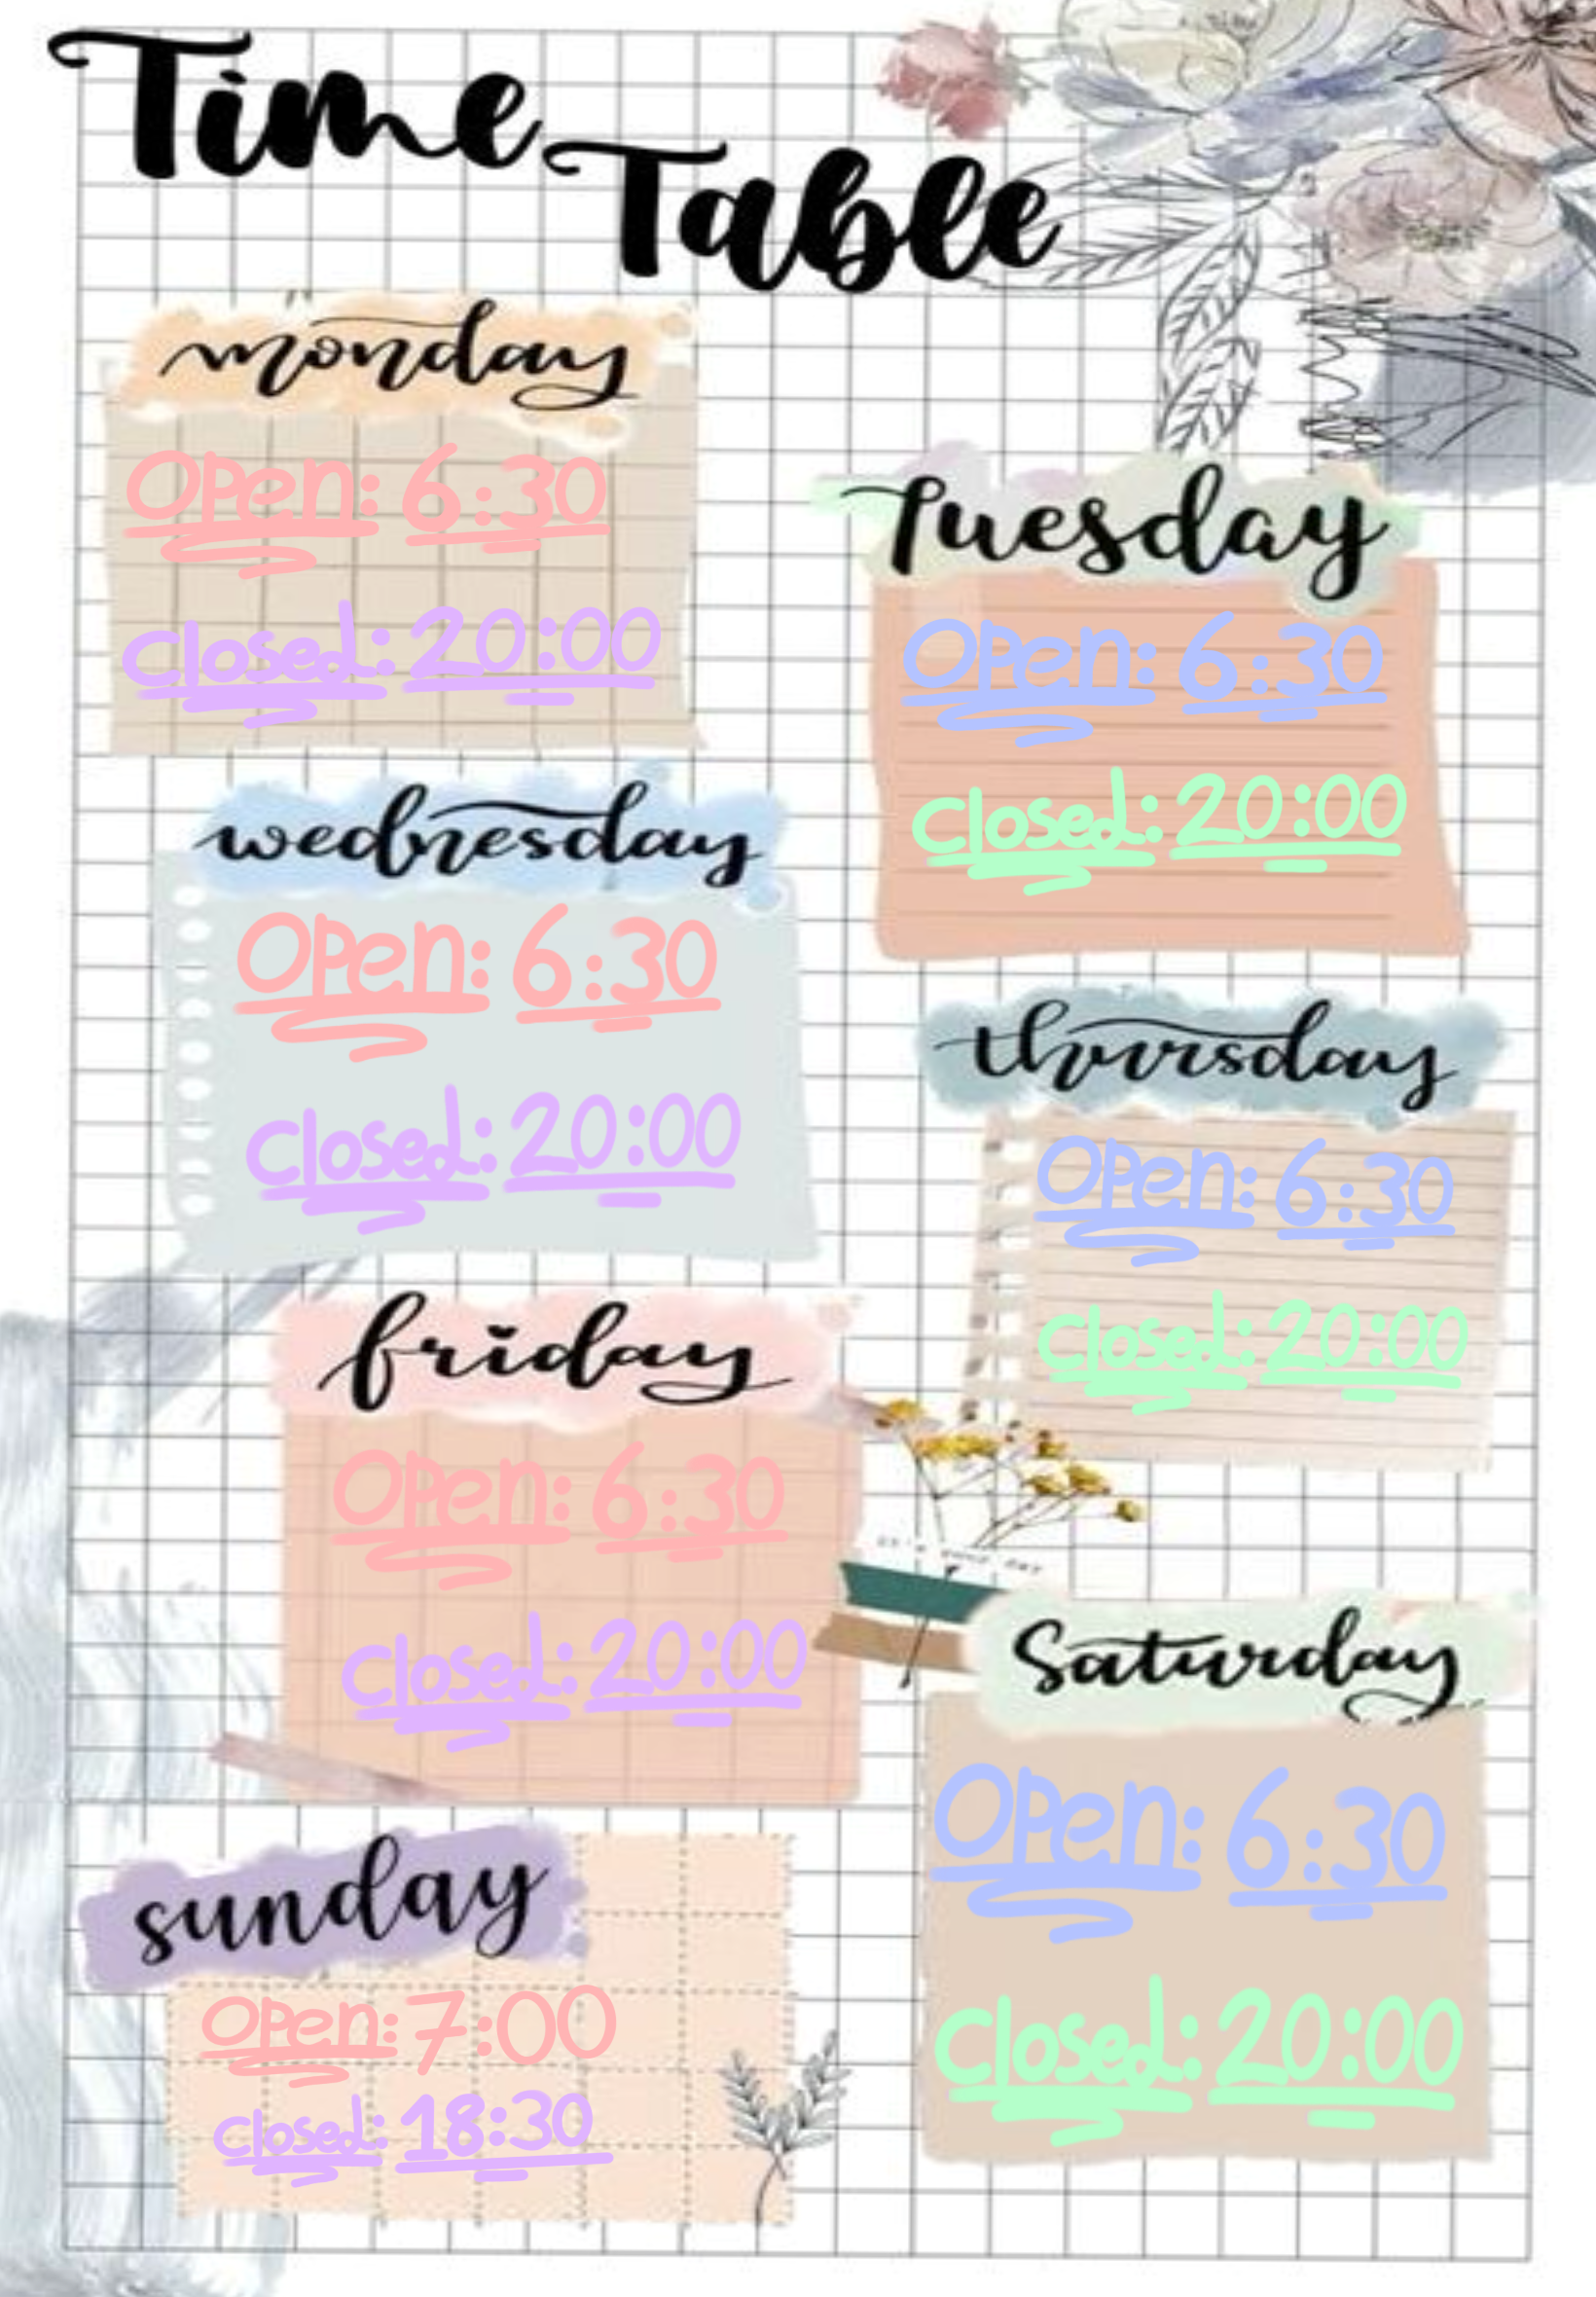 Time
Table
monday
Open: 6:30
Closed: 20:00
Tuesday
Open: 6:30
Closed: 20:00
wednesday
Open: 6:30
Closed: 20:00
thursday
Open: 6:30
Closed: 20:00
friday
Open: 6:30
Closed: 20:00
Saturday
Open: 6:30
Closed: 20:00
sunday
Open: 7:00
Closed: 18:30